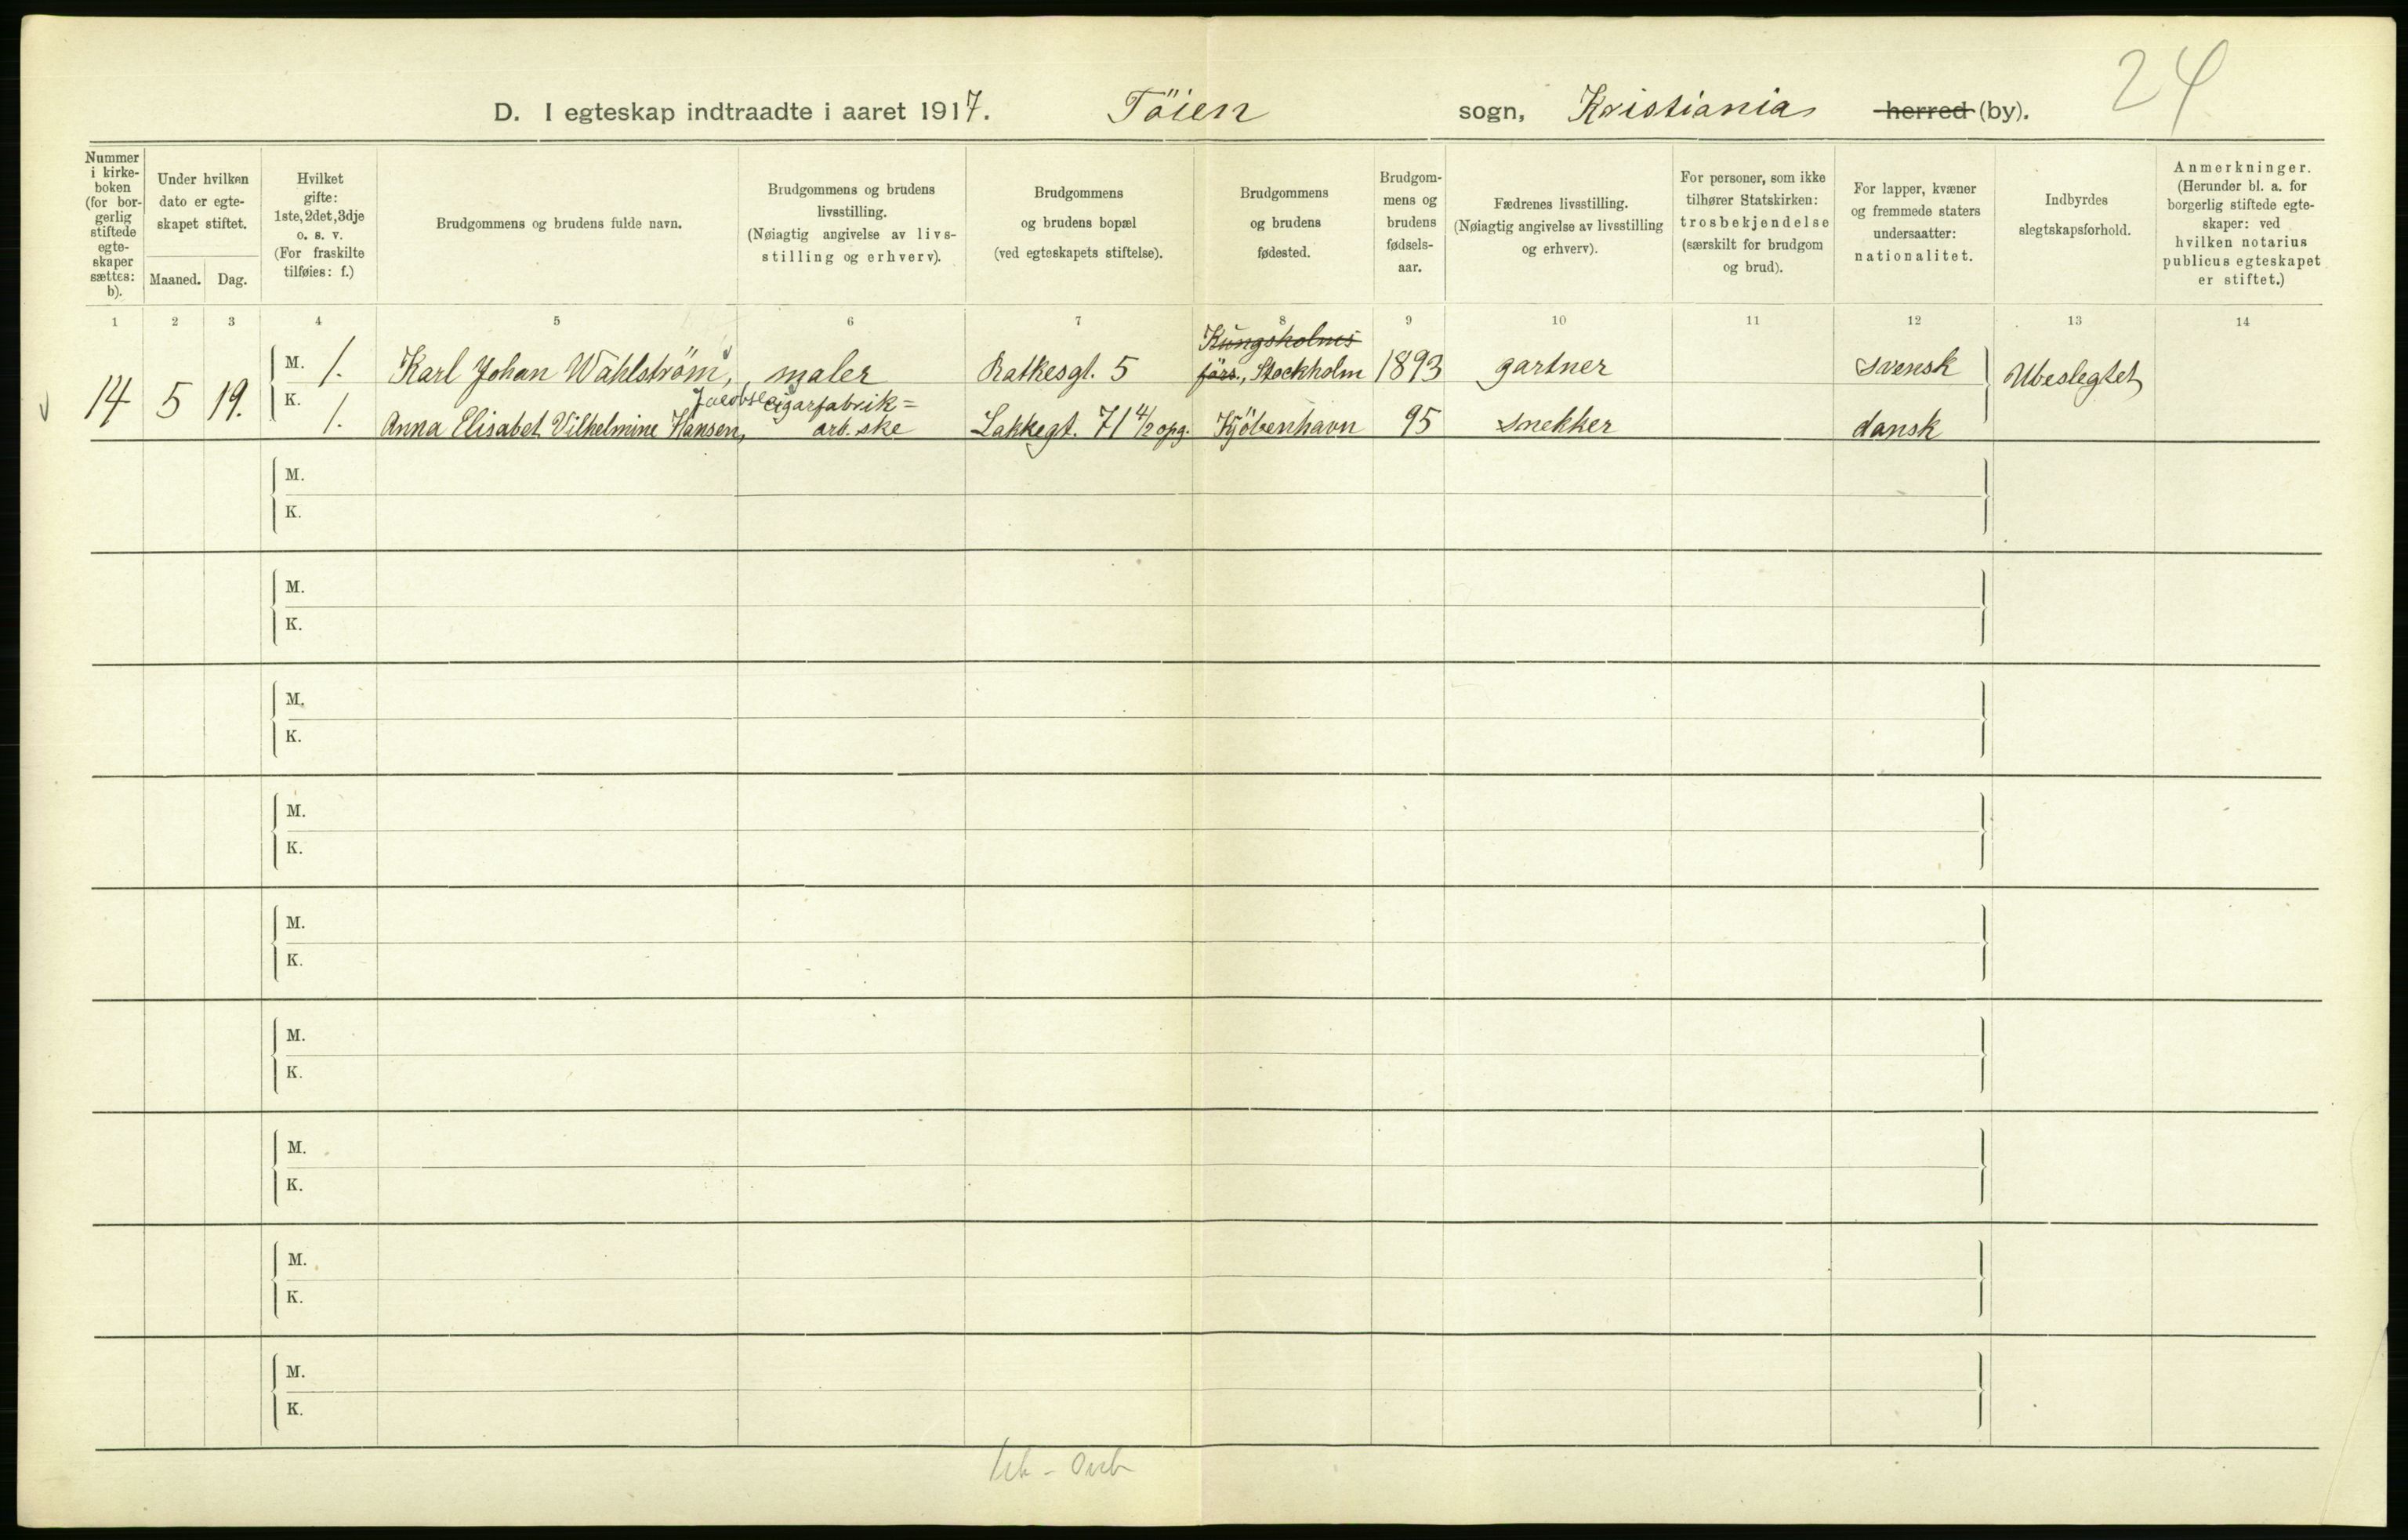 24
D. I egteskap indtraadte i aaret 1917. Töien sogn, Kristiania herred (by).
Nummer i kirke-boken (for bor-gerlig stiftede egte-skaper sættes: b).
Under hvilken dato er egte-skapet stiftet.
Maaned. Dag.
Hvilket gifte: 1ste, 2det, 3dje o. s. v. (For fraskilte tilføies: f.)
Brudgommens og brudens fulde navn.
Brudgommens og brudens livsstilling. (Nøiagtig angivelse av livs-stilling og erhverv).
Brudgommens og brudens bopæl (ved egteskapets stiftelse).
Brudgommens og brudens fødested.
Brudgom-mens og brudens fødsels-aar.
Fædrenes livsstilling. (Nøiagtig angivelse av livsstilling og erhverv).
For personer, som ikke tilhører Statskirken: trosbekjendelse (særskilt for brudgom og brud).
For lapper, kvæner og fremmede staters undersaatter: nationalitet.
Indbyrdes slegtskapsforhold.
Anmerkninger. (Herunder bl. a. for borgerlig stiftede egte-skaper: ved hvilken notarius publicus egteskapet er stiftet.)
1 2 3 4 5 6 7 8 9 10 11 12 13 14
Kungsholms
14 5 19. M. 1. Karl Johan Wahlström, maler Ratkesgt. 5 förs., Stockholm 1893 gartner svensk Ubeslegtet
Jacobsen cigarfabrik=
K. 1. Anna Elisabet Vilhelmine Hansen, arb.ske Lakkegt. 71 4/2 opg. Kjöbenhavn 95 snekker dansk
M.
K.
M.
K.
M.
K.
M.
K.
M.
K.
M.
K.
M.
K.
M.
K.
M.
K.